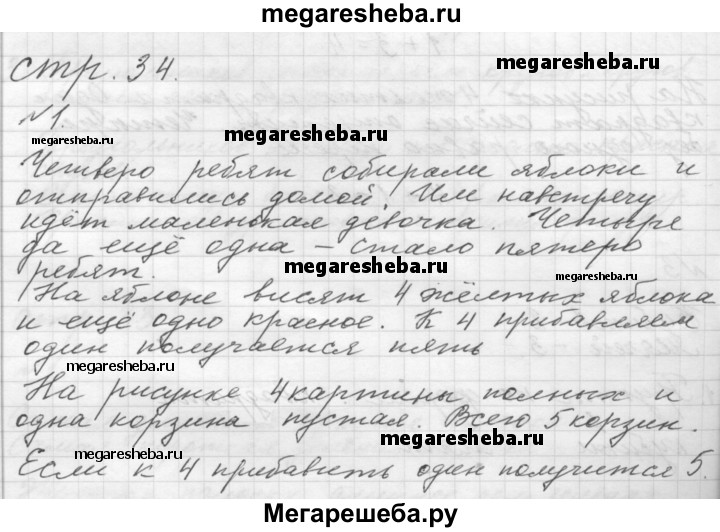 megaresheba.ru
стр. 34.
№1.
megaresheba.ru
megaresheba.ru
Четверо ребят собирали яблоки и
отправились домой. Им навстречу
идёт маленькая девочка. Четыре
да ещё одна – стало пятеро
ребят.
megaresheba.ru
megaresheba.ru
На яблоне висят 4 жёлтых яблока
и ещё одно красное. К 4 прибавляем
один получается пять
megaresheba.ru
На рисунке 4 картины полных и
одна корзина пустая. Всего 5 корзин.
megaresheba.ru
megaresheba.ru
Если к 4 прибавить один получится 5.
Мегарешеба.ру